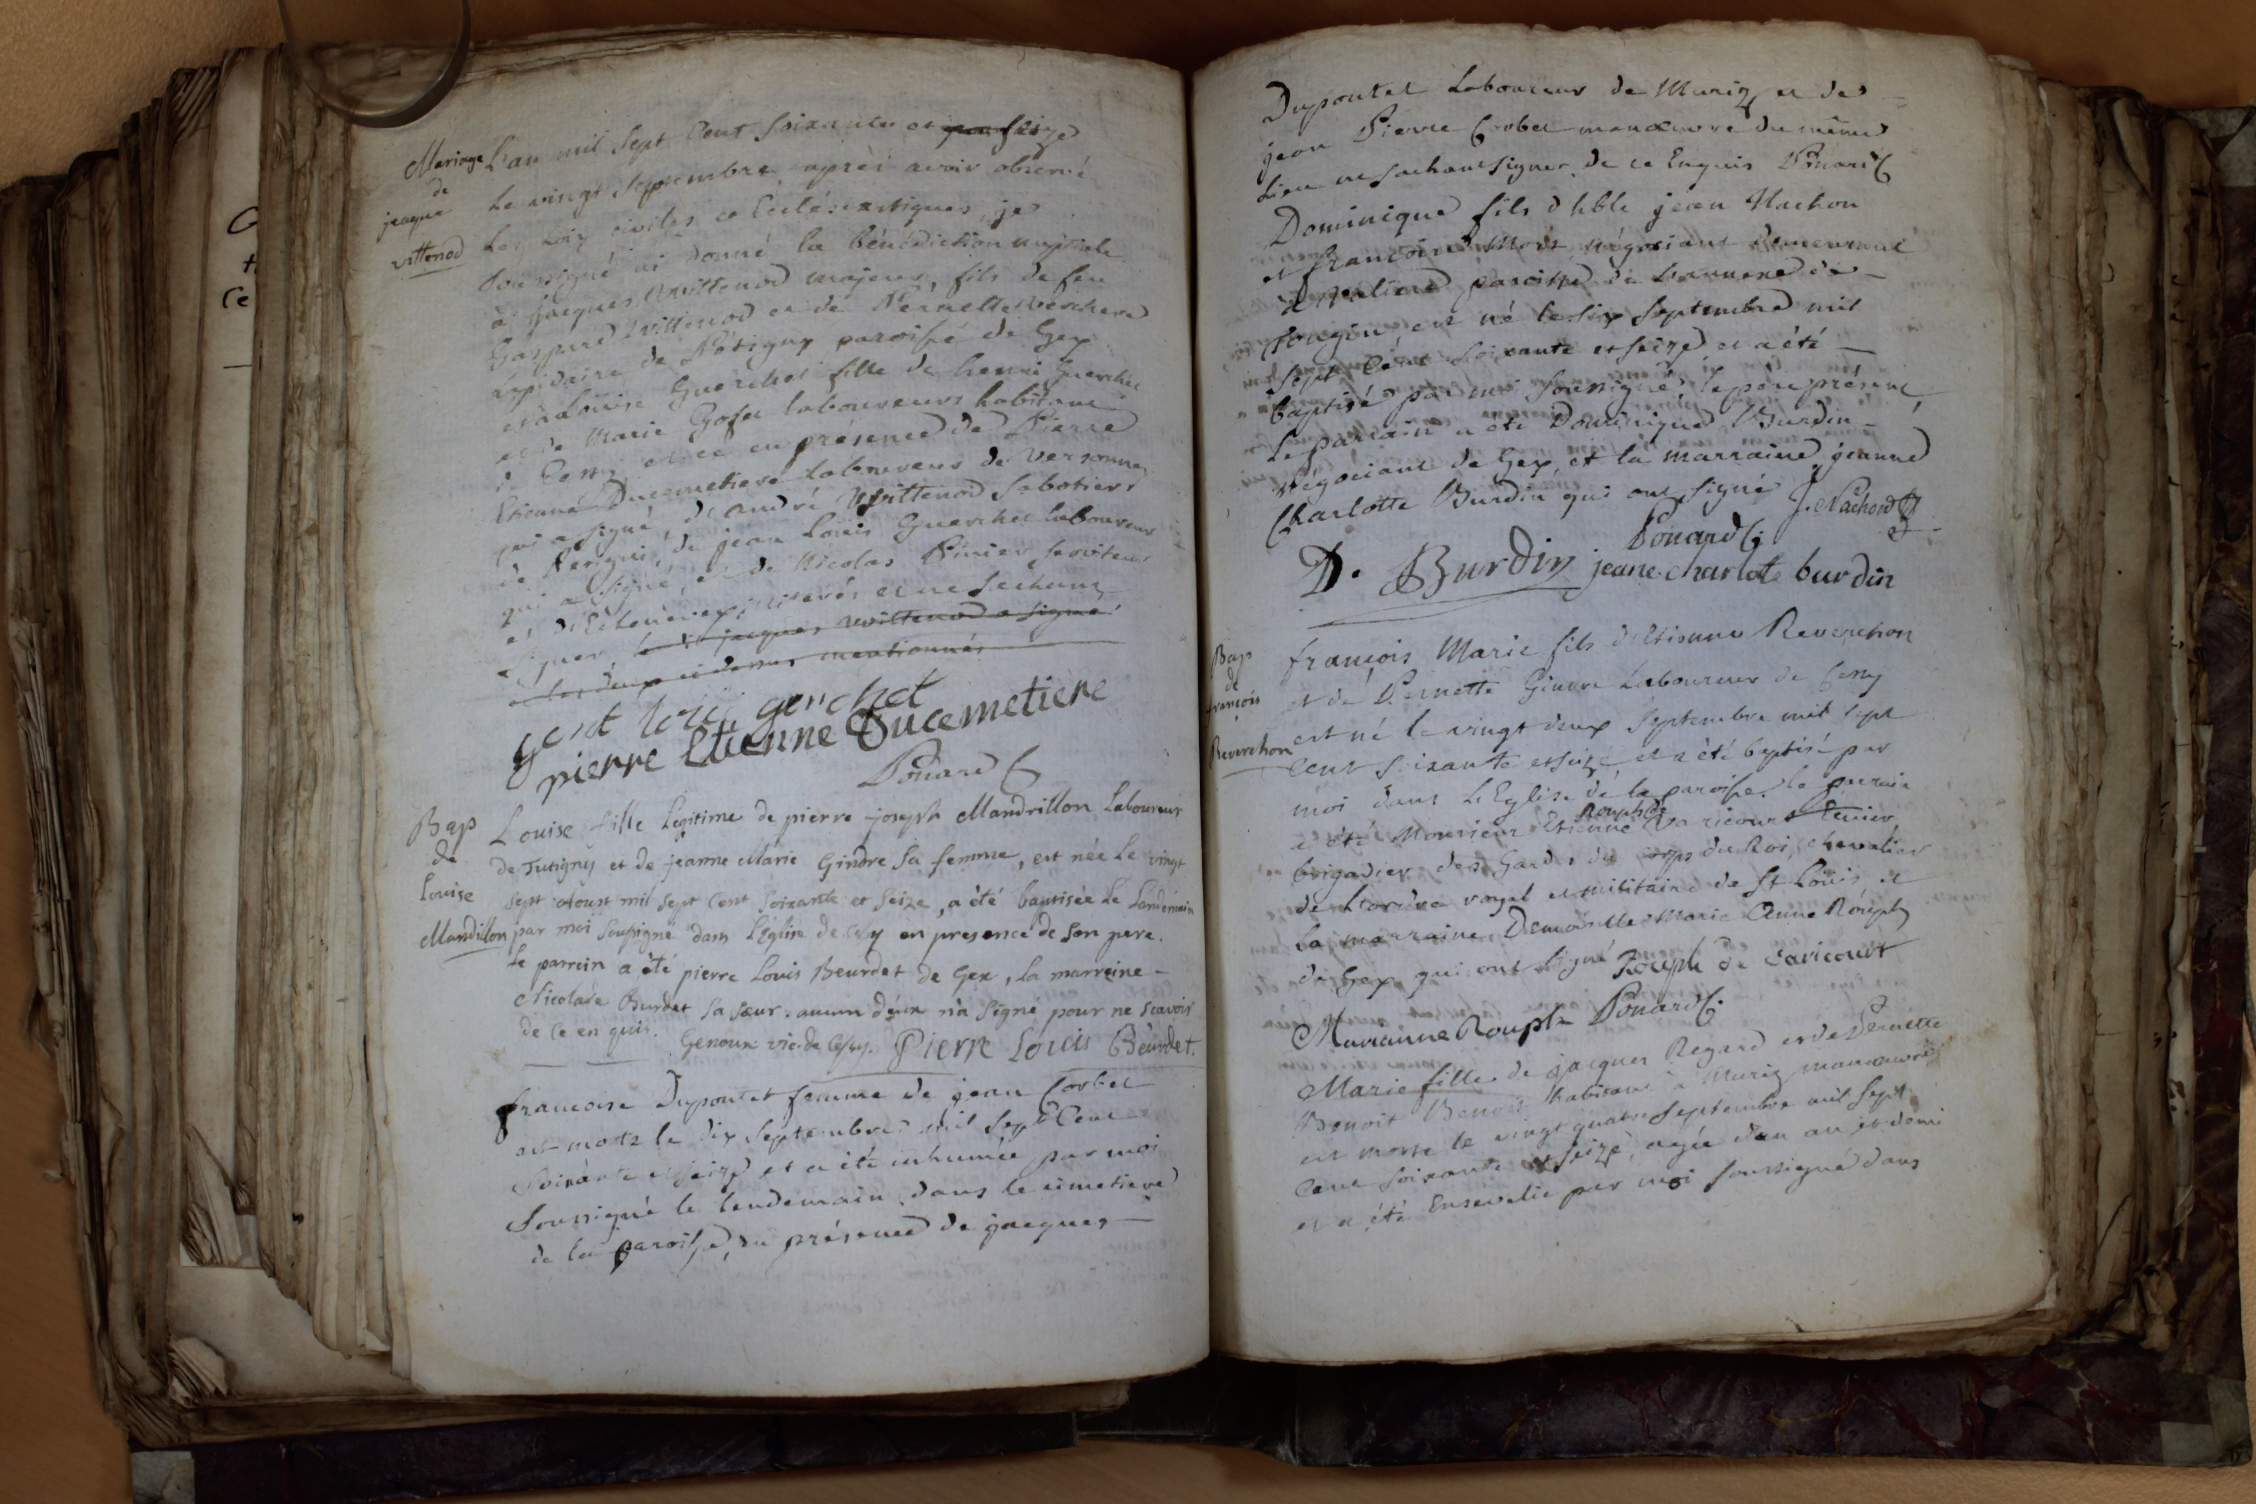 Mariage
de
jacque
vittenod
L'an mil Sept Cent Soixante et seize
le vingt Septembre après avoir observé
les Loix civiles et Ecclésiastiques, je
soussigné ai donné la bénédiction nuptiale
à jacques Wittenod majeur, fils de feu
Gaspard Wittenod et de Pernette
Lapidaire de paroisse de Gex
et à Louise Guerchet fille de henri Guerchet
et de Marie laboureurs habitant
à Cessy et ce en présence de Pierre
Etienne Ducemetiere Laboureur de Versonnex
qui a signé, d'andré Wittenod Sabotier
de de jean Louis Guerchet laboureur
qui a signé, et de Nicolas serviteur
et ne sachant
signer, le dit jacques Wittenod a signé
les deux ci dessus mentionnés
gerchet
pierre Etienne Ducemetiere
Ponard C
Bap
de
Louise
Mandrillon
Louise fille Légitime de pierre joseph Mandrillon Laboureur
de Tutigny et de jeanne Marie Gindre Sa femme, est née Le vingt
sept Aoust mil Sept Cent Soixante et Seize, a été baptisée Le Lendemain
par moi Soussigné dans L'Eglise de Cessy en presence de Son pere.
Le parrein a été pierre Louis Beurdet de Gex, La marreine -
Nicolade Burdet Sa sœur. aucun d'eux n'a Signé pour ne scavoir
de ce en quis. Genoux vic. de Cessy. Pierre Louis Beurdet.
francoise Dupontet femme de jean Corbet
est morte le dix Septembre mil Sept Cent
Soixante et seize et a été inhumée par moi
Soussigné le lendemain dans le cimetiere
de la paroisse, en présence de jacques
Dupontet Laboureur de Muriz et de
jean Pierre Corbet manœuvre du même
Lieu ne sachant signer de ce Enquis Ponard C
Dominique fils d'hble jean Nachon
et francoise négociant demeurant
à paroisse de de
Cougin, est né le six Septembre mil
Sept Cent Soixante et seize et a été
baptisé par moi Soussigné le père présent
Le parrain a été Dominique Burdin
Négociant de Gex, et la marraine jeanne
Charlotte Burdin qui ont signé J. Nachon
Ponard C.
D. Burdin jeane charlote burdin
Bap
de
françois
Reverchon
françois Marie fils d'Etienne Reverchon
et de Pernette Gindre Laboureur de Cessy
est né le vingt deux Septembre mil Sept
Cent Soixante et seize et a été baptisé par
moi dans L'Eglise de la paroisse. le parrain
a été Monsieur Etienne Rouph de Varicourt
brigadier des Gardes du corps du Roi, chevalier
de L'ordre royal et militaire de St Louis, et
la marraine Demoiselle Marie Anne Rouph
de Gex qui ont signé Rouph de Varicourt
Marianne Rouph Ponard C.
Marie fille de jacques Regard et de Pernette
Benoit habitant à Muriz manœuvre
est morte le vingt quatre Septembre mil Sept
Cent Soixante et seize, agée d'un an et demi
et a été Ensevelie par moi soussigné dans